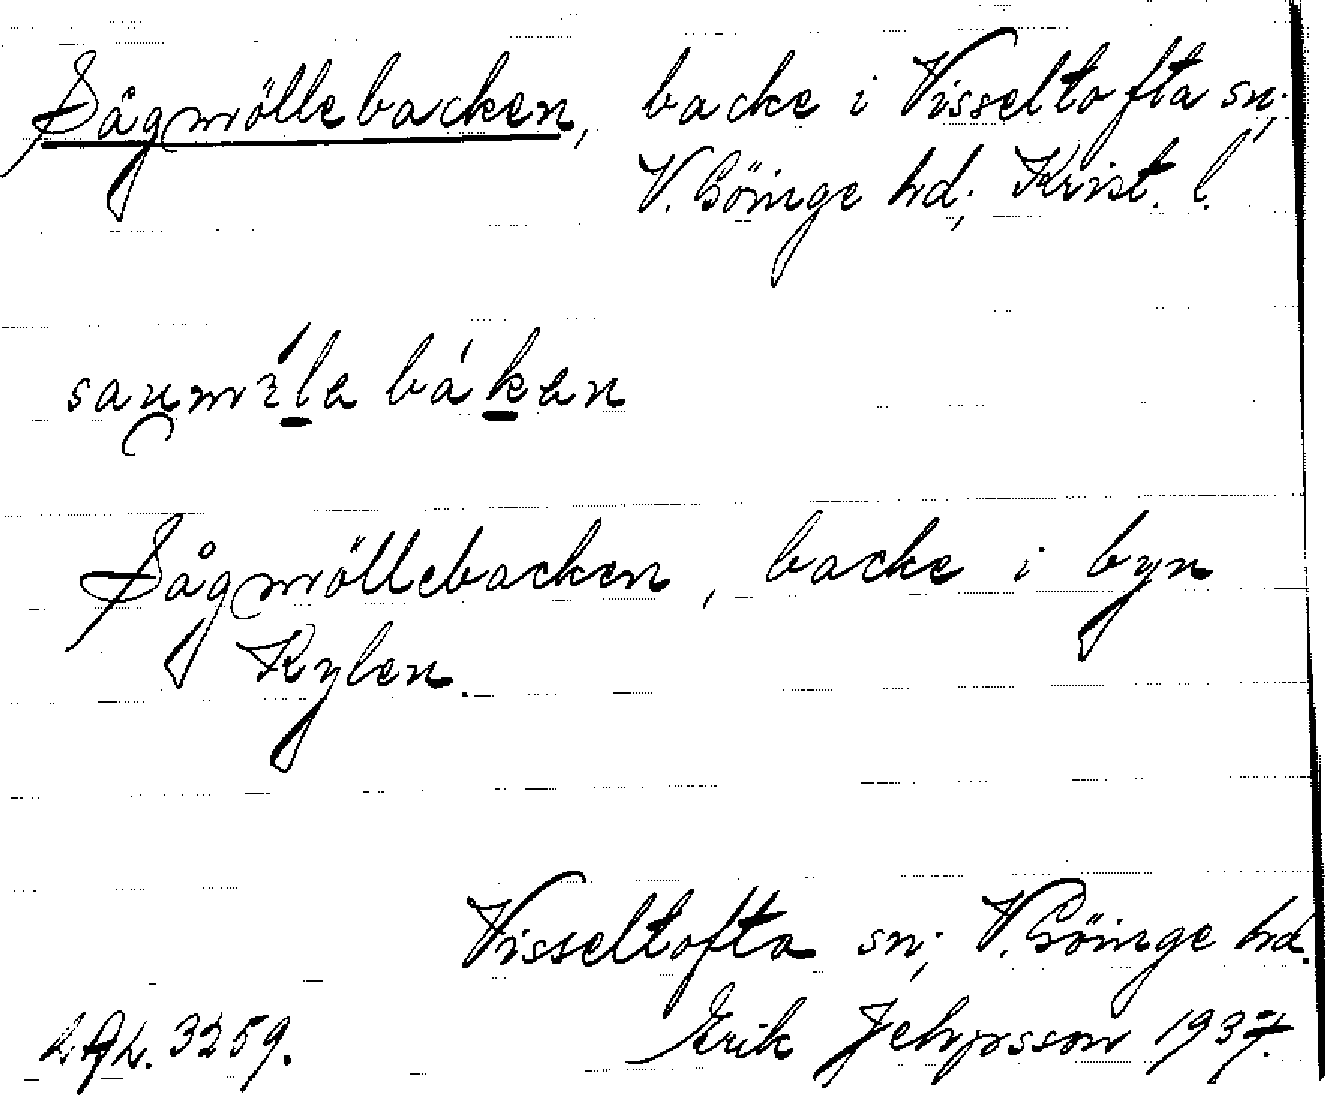 Sågmöllebacken, backe i Visseltofta sn;
V. Göinge hd; Krist. l.
Sågmöllebacken, backe i byn
Kylen.
Visseltofta sn; V. Göinge hd.
Erik Jeppsson 1937.
3259.